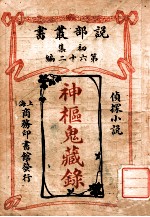 說部叢書
初集
第六十二編
偵探小說
神樞鬼藏錄
上海
商務印書館發行